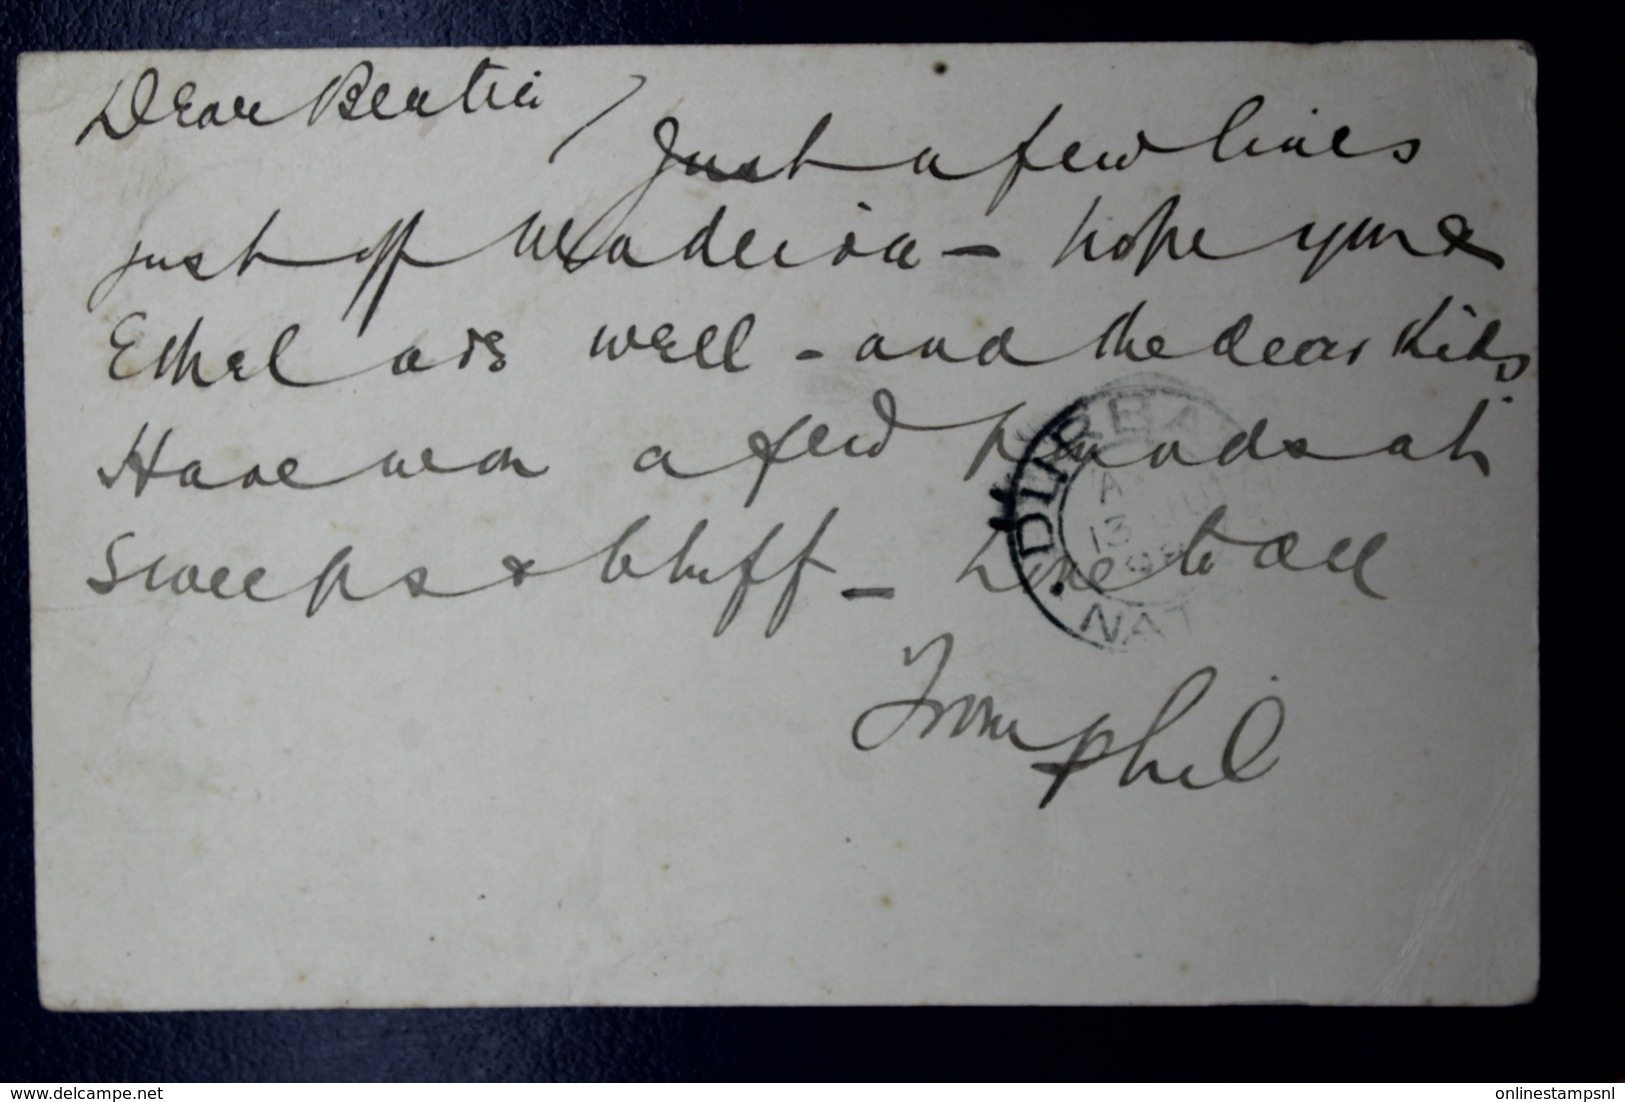 Dear Beatie
Just a few lines
just off Madeira - hope you &
Ethel are well - and the dear Kids
Have won a few pounds at
Sweeps & bluff - Love to all
From Phil
DURBA
13 JU
98
NAT
delcampe.net
onlinestampsnl